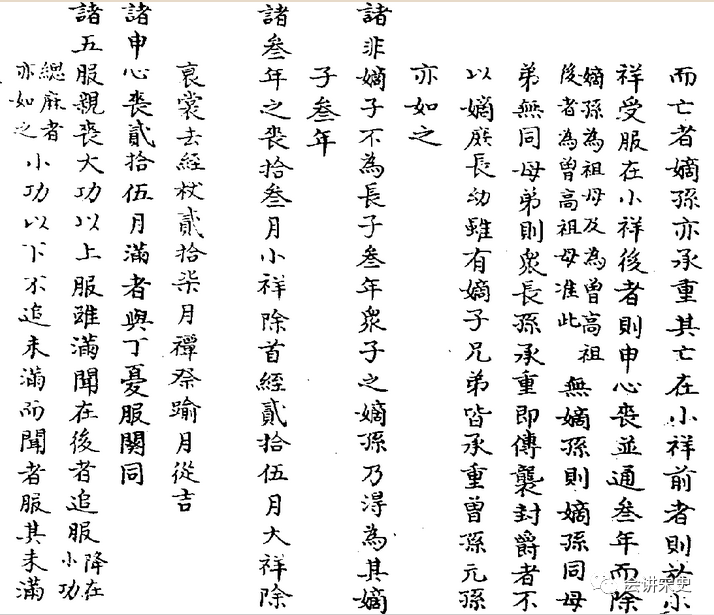 而亡者嫡孫亦承重其亡在小祥前者則於小
祥受服在小祥後者則申心喪並通叁年而除
嫡孫為祖母及為曾高祖
後者為曾高祖母准此
無嫡孫則嫡孫同母
弟無同母弟則衆長孫承重即傳襲封爵者不
以嫡庻長幼雖有嫡子兄弟皆承重曾孫元孫
亦如之
諸非嫡子不為長子叁年衆子之嫡孫乃得為其嫡
子叁年
諸叁年之喪拾叁月小祥除首絰貳拾伍月大祥除
衰裳去絰杖貳拾柒月禫祭踰月從吉
諸申心喪貳拾伍月滿者與丁憂服闋同
諸五服親喪大功以上服雖滿聞在後者追服
降在
小功
緦麻者
亦如之
小功以下不追未滿而聞者服其未滿
会讲宋史